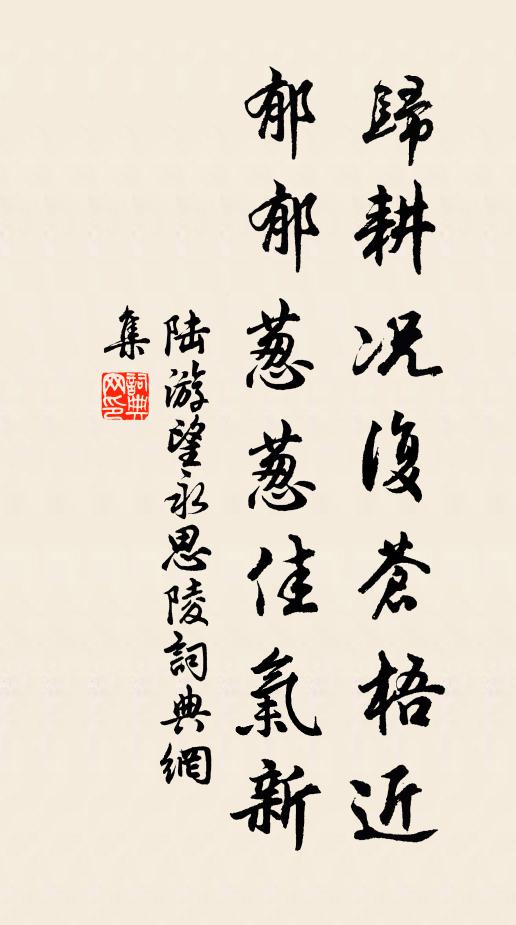 歸耕况復蒼梧近
郁郁蔥蔥佳氣新
陆游望永思陵詞典網
集
詞典網印